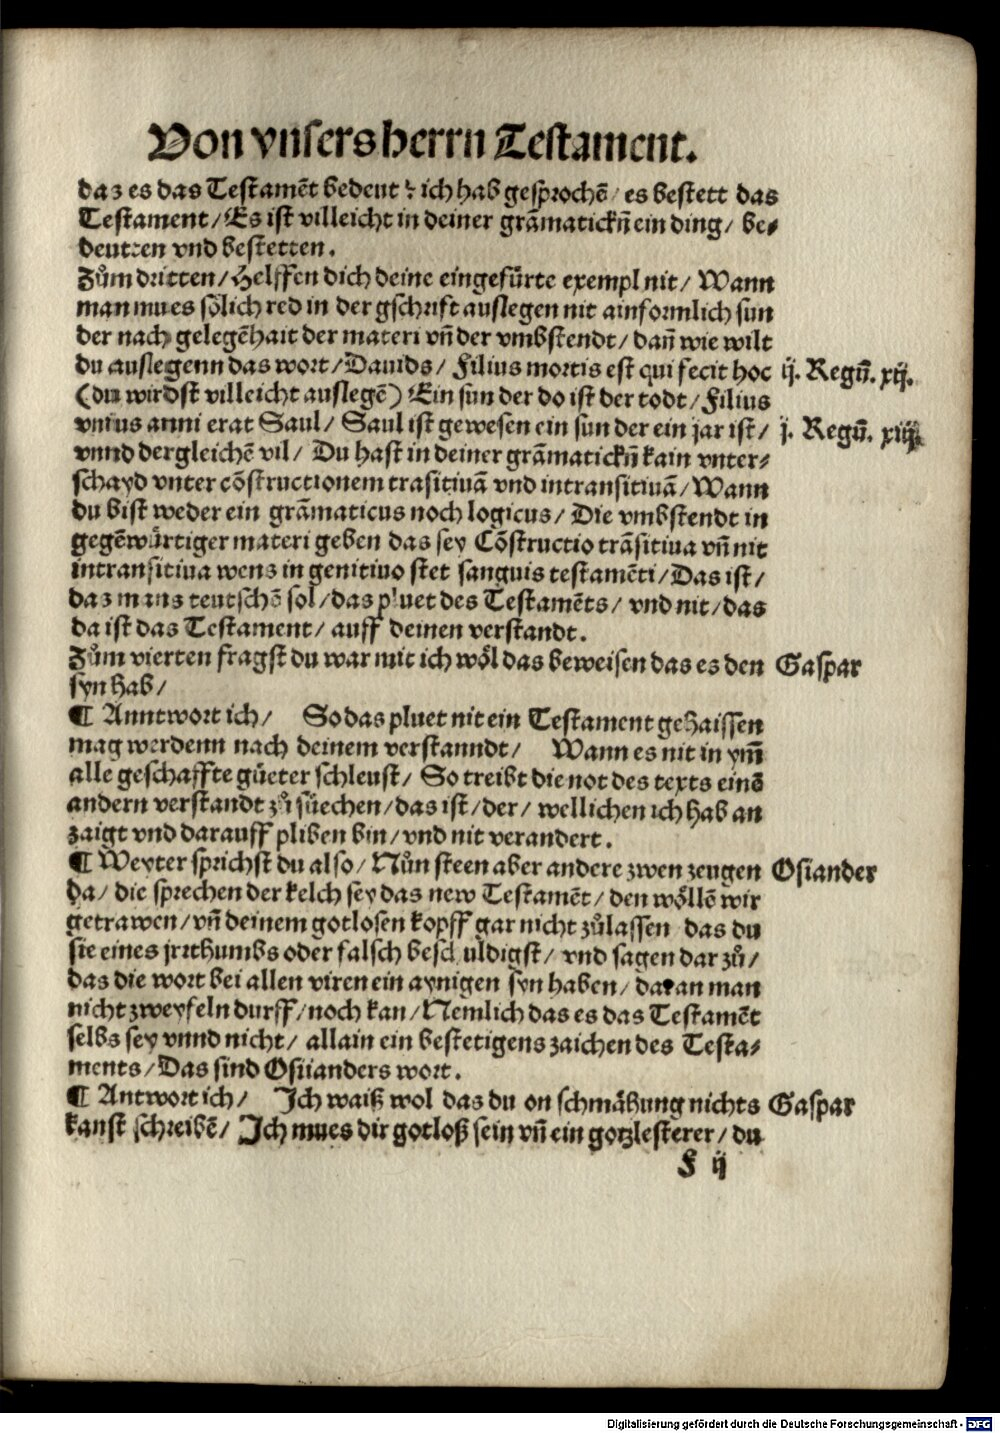 Von vnsers herrn Testament.
daz es das Testamēt bedeut ich hab gesprochē / es bestett das
Testament / Es ist villeicht in deiner grāmatickn̄ ein ding / be⸗
deutten vnd bestetten.
Zům dritten / Helffen dich deine eingefürte exempl nit / Wann
man mues sölich red in der gschrift auslegen nit ainformlich sun
der nach gelegēhait der materi vn̄ der vmbstendt / dan̄ wie wilt
du auslegenn das wort / Dauids / Filius mortis est qui fecit hoc ij. Regū. xij.
(du wirdst villeicht auslegē) Ein sun der do ist der todt / Filius
vnius anni erat Saul / Saul ist gewesen ein sun der ein jar ist / j. Regū. xiij.
vnnd dergleichē vil / Du hast in deiner grāmatickn̄ kain vnter⸗
schayd vnter cōstructionem trāsitiuā vnd intransitiuā / Wann
du bist weder ein grāmaticus noch logicus / Die vmbstendt in
gegēwürtiger materi geben das sey Cōstructio trāsitiua vn̄ nit
intransitiua wens in genitiuo stet sanguis testamēti / Das ist /
daz mans teutschē sol / das pluet des Testamēts / vnd nit / das
da ist das Testament / auff deinen verstandt.
Zům vierten fragst du war mit ich wöl das beweisen das es den Gaspar
syn hab /
¶ Anntwort ich / So das pluet nit ein Testament gehaissen
mag werdenn nach deinem verstanndt / Wann es nit in ym̄
alle geschaffte güeter schleust / So treibt die not des texts einē
andern verstandt zů süechen / das ist / der / wellichen ich hab an
zaigt vnd darauff pliben bin / vnd nit verandert.
¶ Weyter sprichst du also / Nůn steen aber andere zwen zeugen Osiander
da / die sprechen der kelch sey das new Testamēt / den wöllē wir
getrawen / vn̄ deinem gotlosen kopff gar nicht zůlassen das du
sie eines jrrthumbs oder falsch beschuldigst / vnd sagen dar zů /
das die wort bei allen viren ein aynigen syn haben / daran man
nicht zweyfeln durff / noch kan / Nemlich das es das Testamēt
selbs sey vnnd nicht / allain ein bestetigens zaichen des Testa⸗
ments / Das sind Osiianders wort.
¶ Antwort ich / Ich waiß wol das du on schmähung nichts Gaspar
kanst schreibē / Ich mues dir gotloß sein vn̄ ein gotzlesterer / du
F ij
Digitalisierung gefördert durch die Deutsche Forschungsgemeinschaft - DFG